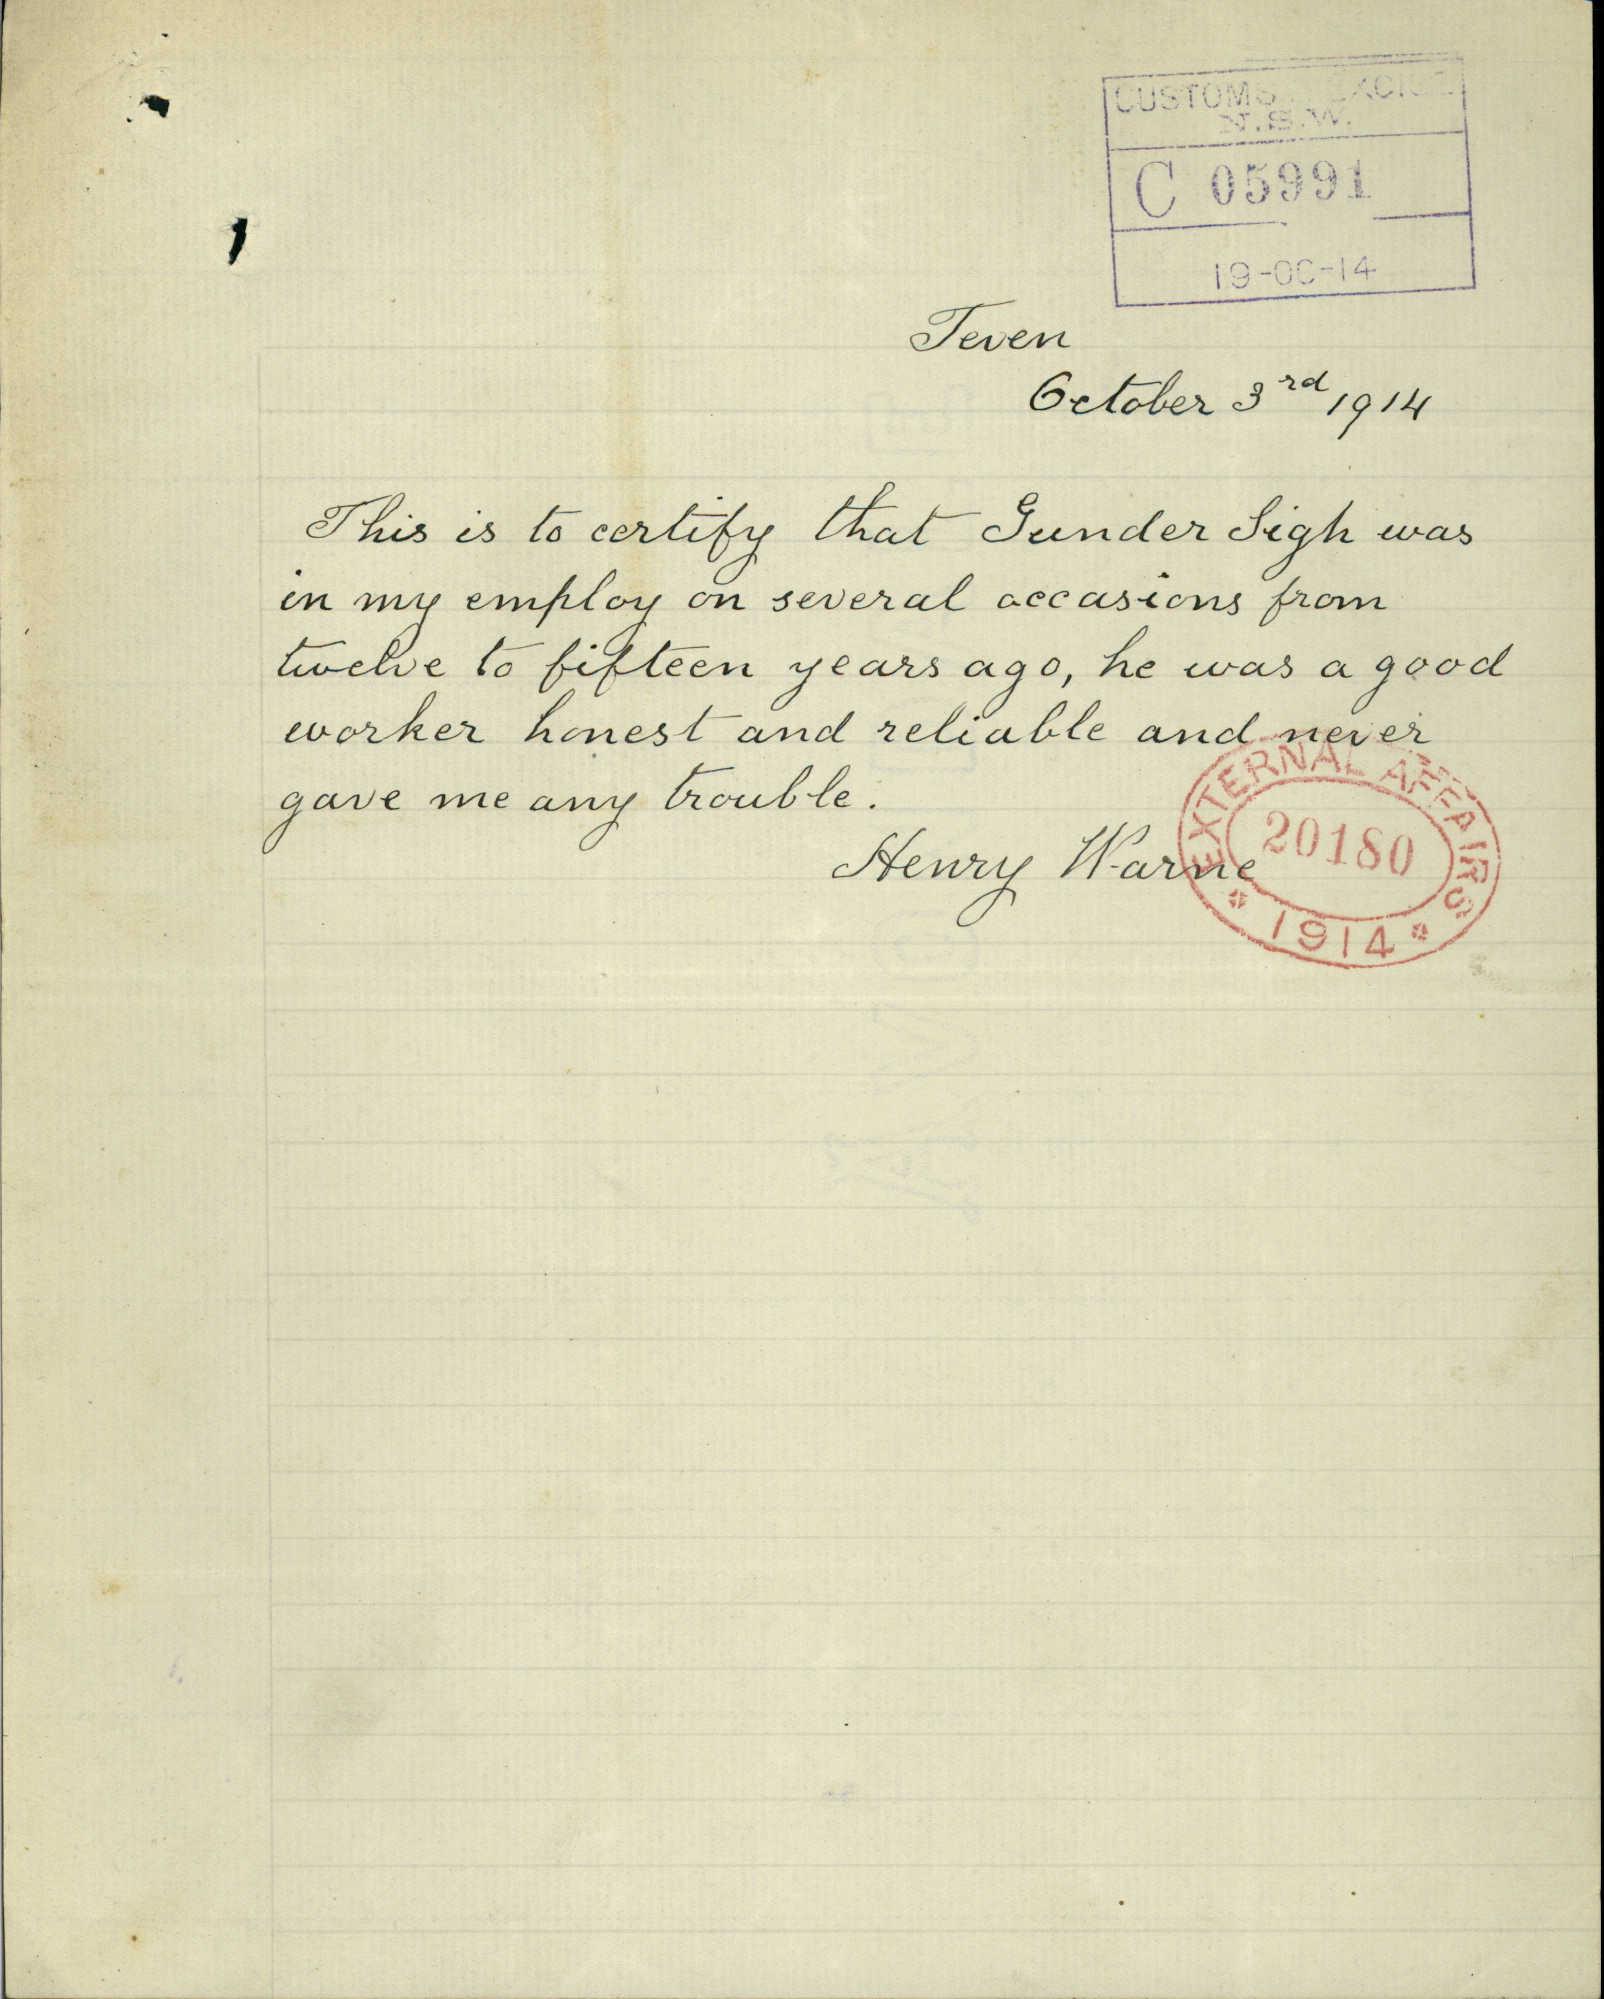 CUSTOMS EXCISE
N.S.W.
C 05991
19-OC-14
Teven
October 3rd 1914
This is to certify that Gunder Sigh was
in my employ on several occasions from
twelve to fifteen years ago, he was a good
worker honest and reliable and never
gave me any trouble.
Henry Warne
EXTERNAL AFFAIRS
20180
1914